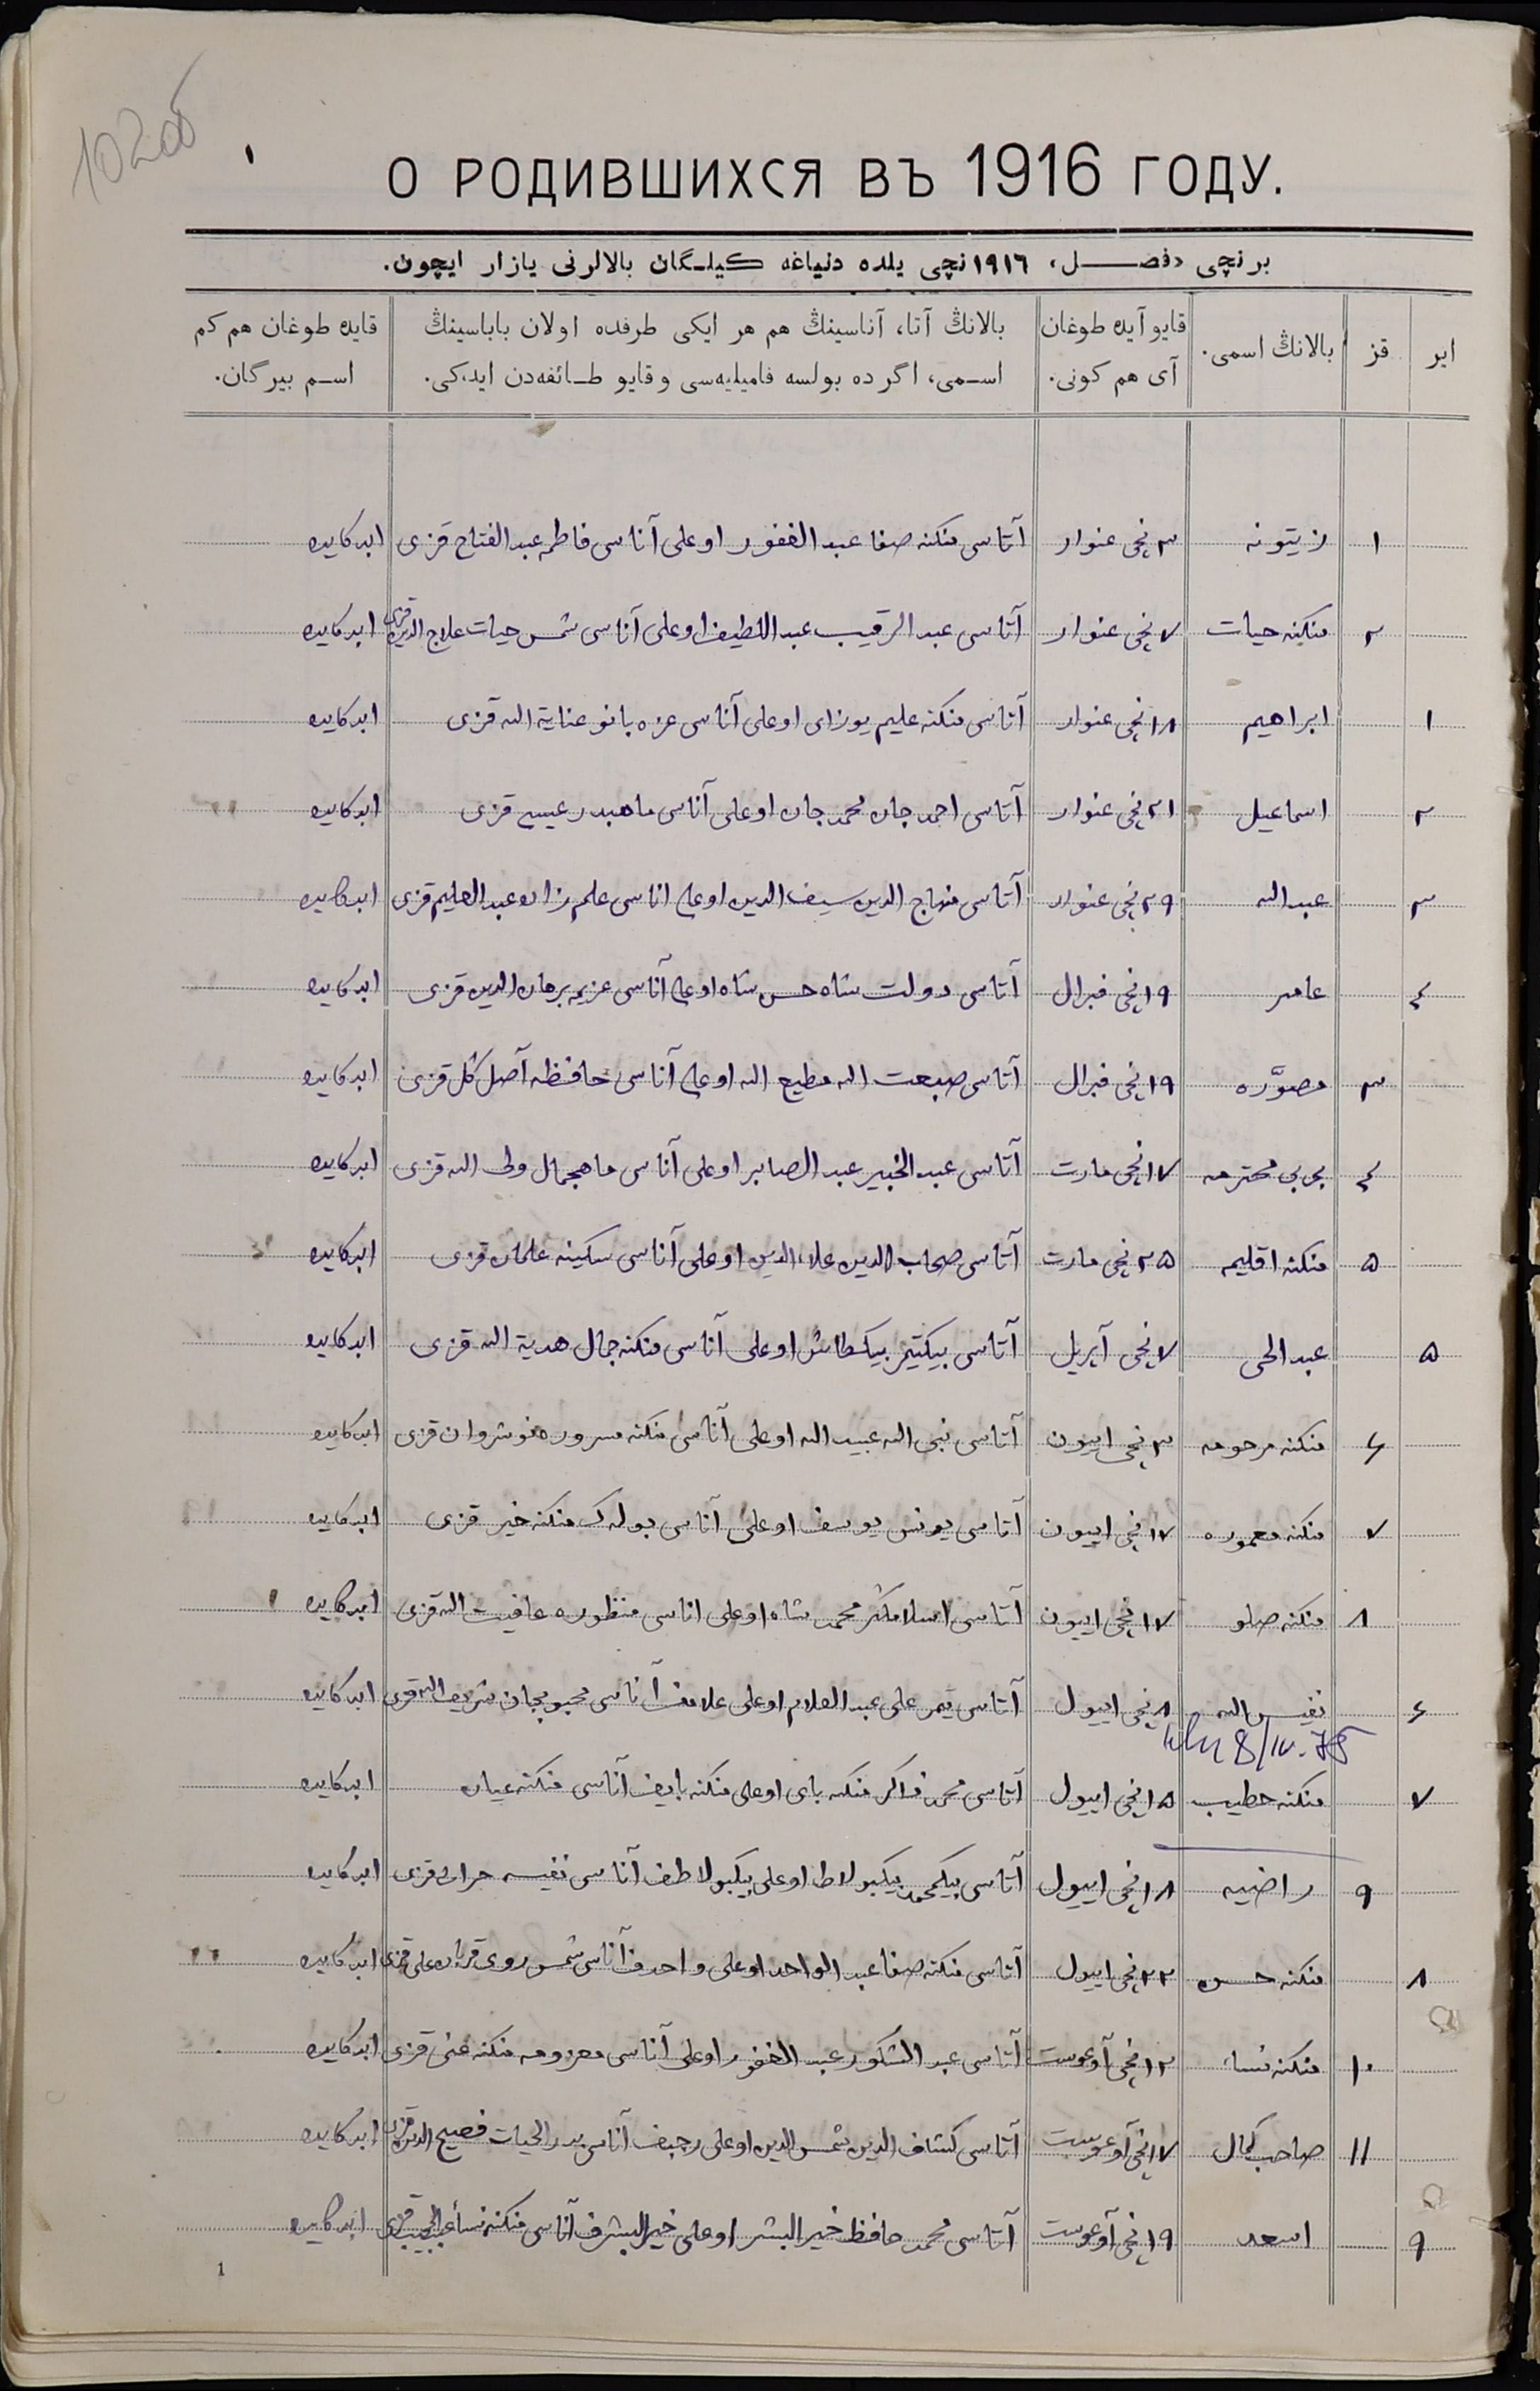 102об
О РОДИВШИХСЯ ВЪ 1916 ГОДУ.
برنچی «فصل»، ١٩١٦ نچی یلده دنیاغه کیلگان بالالرنی یازار ایچون.
ایر | قز | بالانڭ اسمی. | قایو آیده طوغان آی هم کونی. | بالانڭ آتا، آناسینڭ هم هر ایکی طرفده اولان باباسینڭ اسمی، اگرده بولسه فامیلیه‌سی و قایو طائفه‌دن ایدکی. | قایده طوغان هم کم اسم بیرگان.
١ زیتونه ٣ نچی غنوار آتاسی منکنه صفا عبد الغفور اوغلی آناسی فاطمه عبد الفتاح قزی ابدکایده
٢ منکنه حیات ٧ نچی غنوار آتاسی عبد الرقیب عبد اللطیف اوغلی آناسی شمس حیات علاج الدین قزی ابدکایده
١ ابراهیم ١٨ نچی غنوار آتاسی منکنه علیم یوزای اوغلی آناسی عزه بانو عنایة الله قزی ابدکایده
٢ اسماعیل ٢١ نچی غنوار آتاسی احمد جان محمد جان اوغلی آناسی ماهبدر عیسی قزی ابدکایده
٣ عبد الله ٢٩ نچی غنوار آتاسی منهاج الدین سیف الدین اوغلی اناسی علم زاده عبد العلیم قزی ابدکایده
٤ عامر ١٩ نچی فبرال آتاسی دولت شاه حسن شاه اوغلی آناسی عزیمه برهان الدین قزی ابدکایده
٣ مصوّره ١٩ نچی فبرال آتاسی صبعت الله مطیع الله اوغلی آناسی حافظه آصل گل قزی ابدکایده
٤ بی بی محترمه ١٧ نچی مارت آتاسی عبد الخبیر عبد الصابر اوغلی آناسی ماهجمال ولی الله قزی ابدکایده
٥ منکنه اقلیمه ٢٥ نچی مارت آتاسی صحاب الدین علاء الدین اوغلی آناسی سکینه علمان قزی ابدکایده
٥ عبد الحی ٧ نچی آپریل آتاسی بیکتیمر بیکطاش اوغلی آناسی منکنه جمال هدیة الله قزی ابدکایده
٦ منکنه مرحومه ٣ نچی اییون آتاسی نبی الله عبید الله اوغلی آناسی منکنه مسروره نوشروان قزی ابدکایده
٧ منکنه معموره ١٧ نچی اییون آتاسی یونس یوسف اوغلی آناسی بوله ک منکنه خیر قزی ابدکایده
٨ منکنه صلو ١٧ نچی اییون آتاسی اسلامگر محمد شاه اوغلی اناسی منظوره عافیت الله قزی ابدکایده
٦ نفیس الله ٨ نچی اییول آتاسی تیمر علی عبد العلام اوغلی علامف آناسی محبوبجان شریف الله قزی ابدکایده
8/IV-75
٧ منکنه خطیب ١٥ نچی اییول آتاسی محمد ذاکر منکنه بای اوغلی منکنه بایف آناسی منکنه عیان ابدکایده
٩ راضیه ١٨ نچی اییول آتاسی بیکمحمد بیکبولاط اوغلی بیکبولاطف آناسی نفیسه قزی ابدکایده
٨ منکنه حسن ٢٢ نچی اییول آتاسی منکنه صفا عبد الواحد اوغلی واحدف آناسی شمس روی قربان علی قزی ابدکایده
١٠ منکنه نساء ١٢ نچی آوغوست آتاسی عبد الشکور عبد الغفور اوغلی آناسی معدومه منکنه غنی قزی ابدکایده
١١ صاحب کمال ١٧ نچی آوغوست آتاسی کشاف الدین شمس الدین اوغلی رجبف آناسی بدر الحیات فصیح الدین قزی ابدکایده
٩ اسعد ١٩ نچی آوغوست آتاسی محمد حافظ خیر البشر اوغلی خیر البشرف آناسی منکنه نساء قزی ابدکایده
1